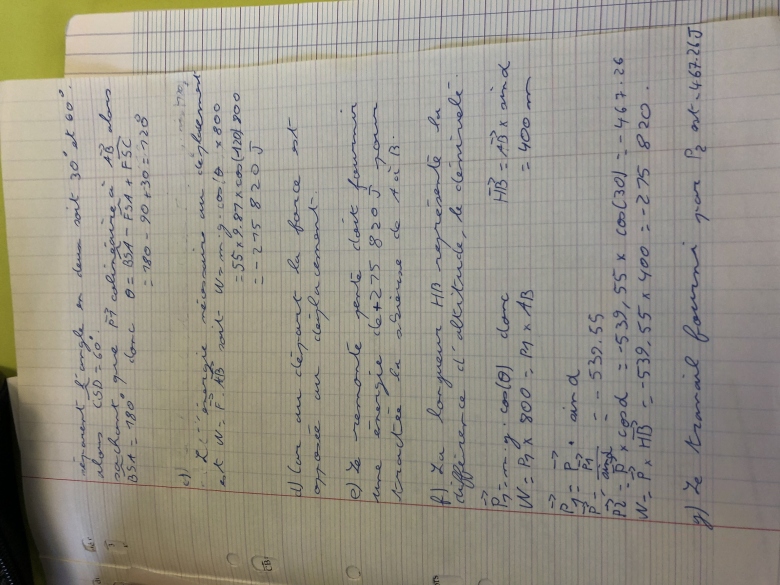 séparent l'angle en deux soit 30° et 60°.
alors CSD = 60°
sachant que P1 colinéaire à AB alors
BSA = 180° donc θ = BSA - FSA + FSC
= 180 - 90 + 30 = 120
c)
L' énergie nécessaire au déplacement
est W = F . AB soit W = m . g . cos θ × 800
= 55 × 9.81 × cos(120) 800
= - 215 820 J
d) Car au départ la force est
opposée au déplacement.
e) Le remonte pente doit fournir
une énergie de +215 820 J pour
tractée la skieuse de A à B.
f) La longueur HB représente la
différence d'altitude, le dénivelé.
P1 = m . g . cos(θ) donc HB = AB × sin α
W = P1 × 800 = P1 × AB = 400 m
P1 = P . sin α
P = P1 / sin α = - 539.55
P2 = P × cos α = -539,55 × cos(30) = -467.26
W = P × HB = -539.55 × 400 = -215 820.
g) Le travail fourni par P2 est -467.26J